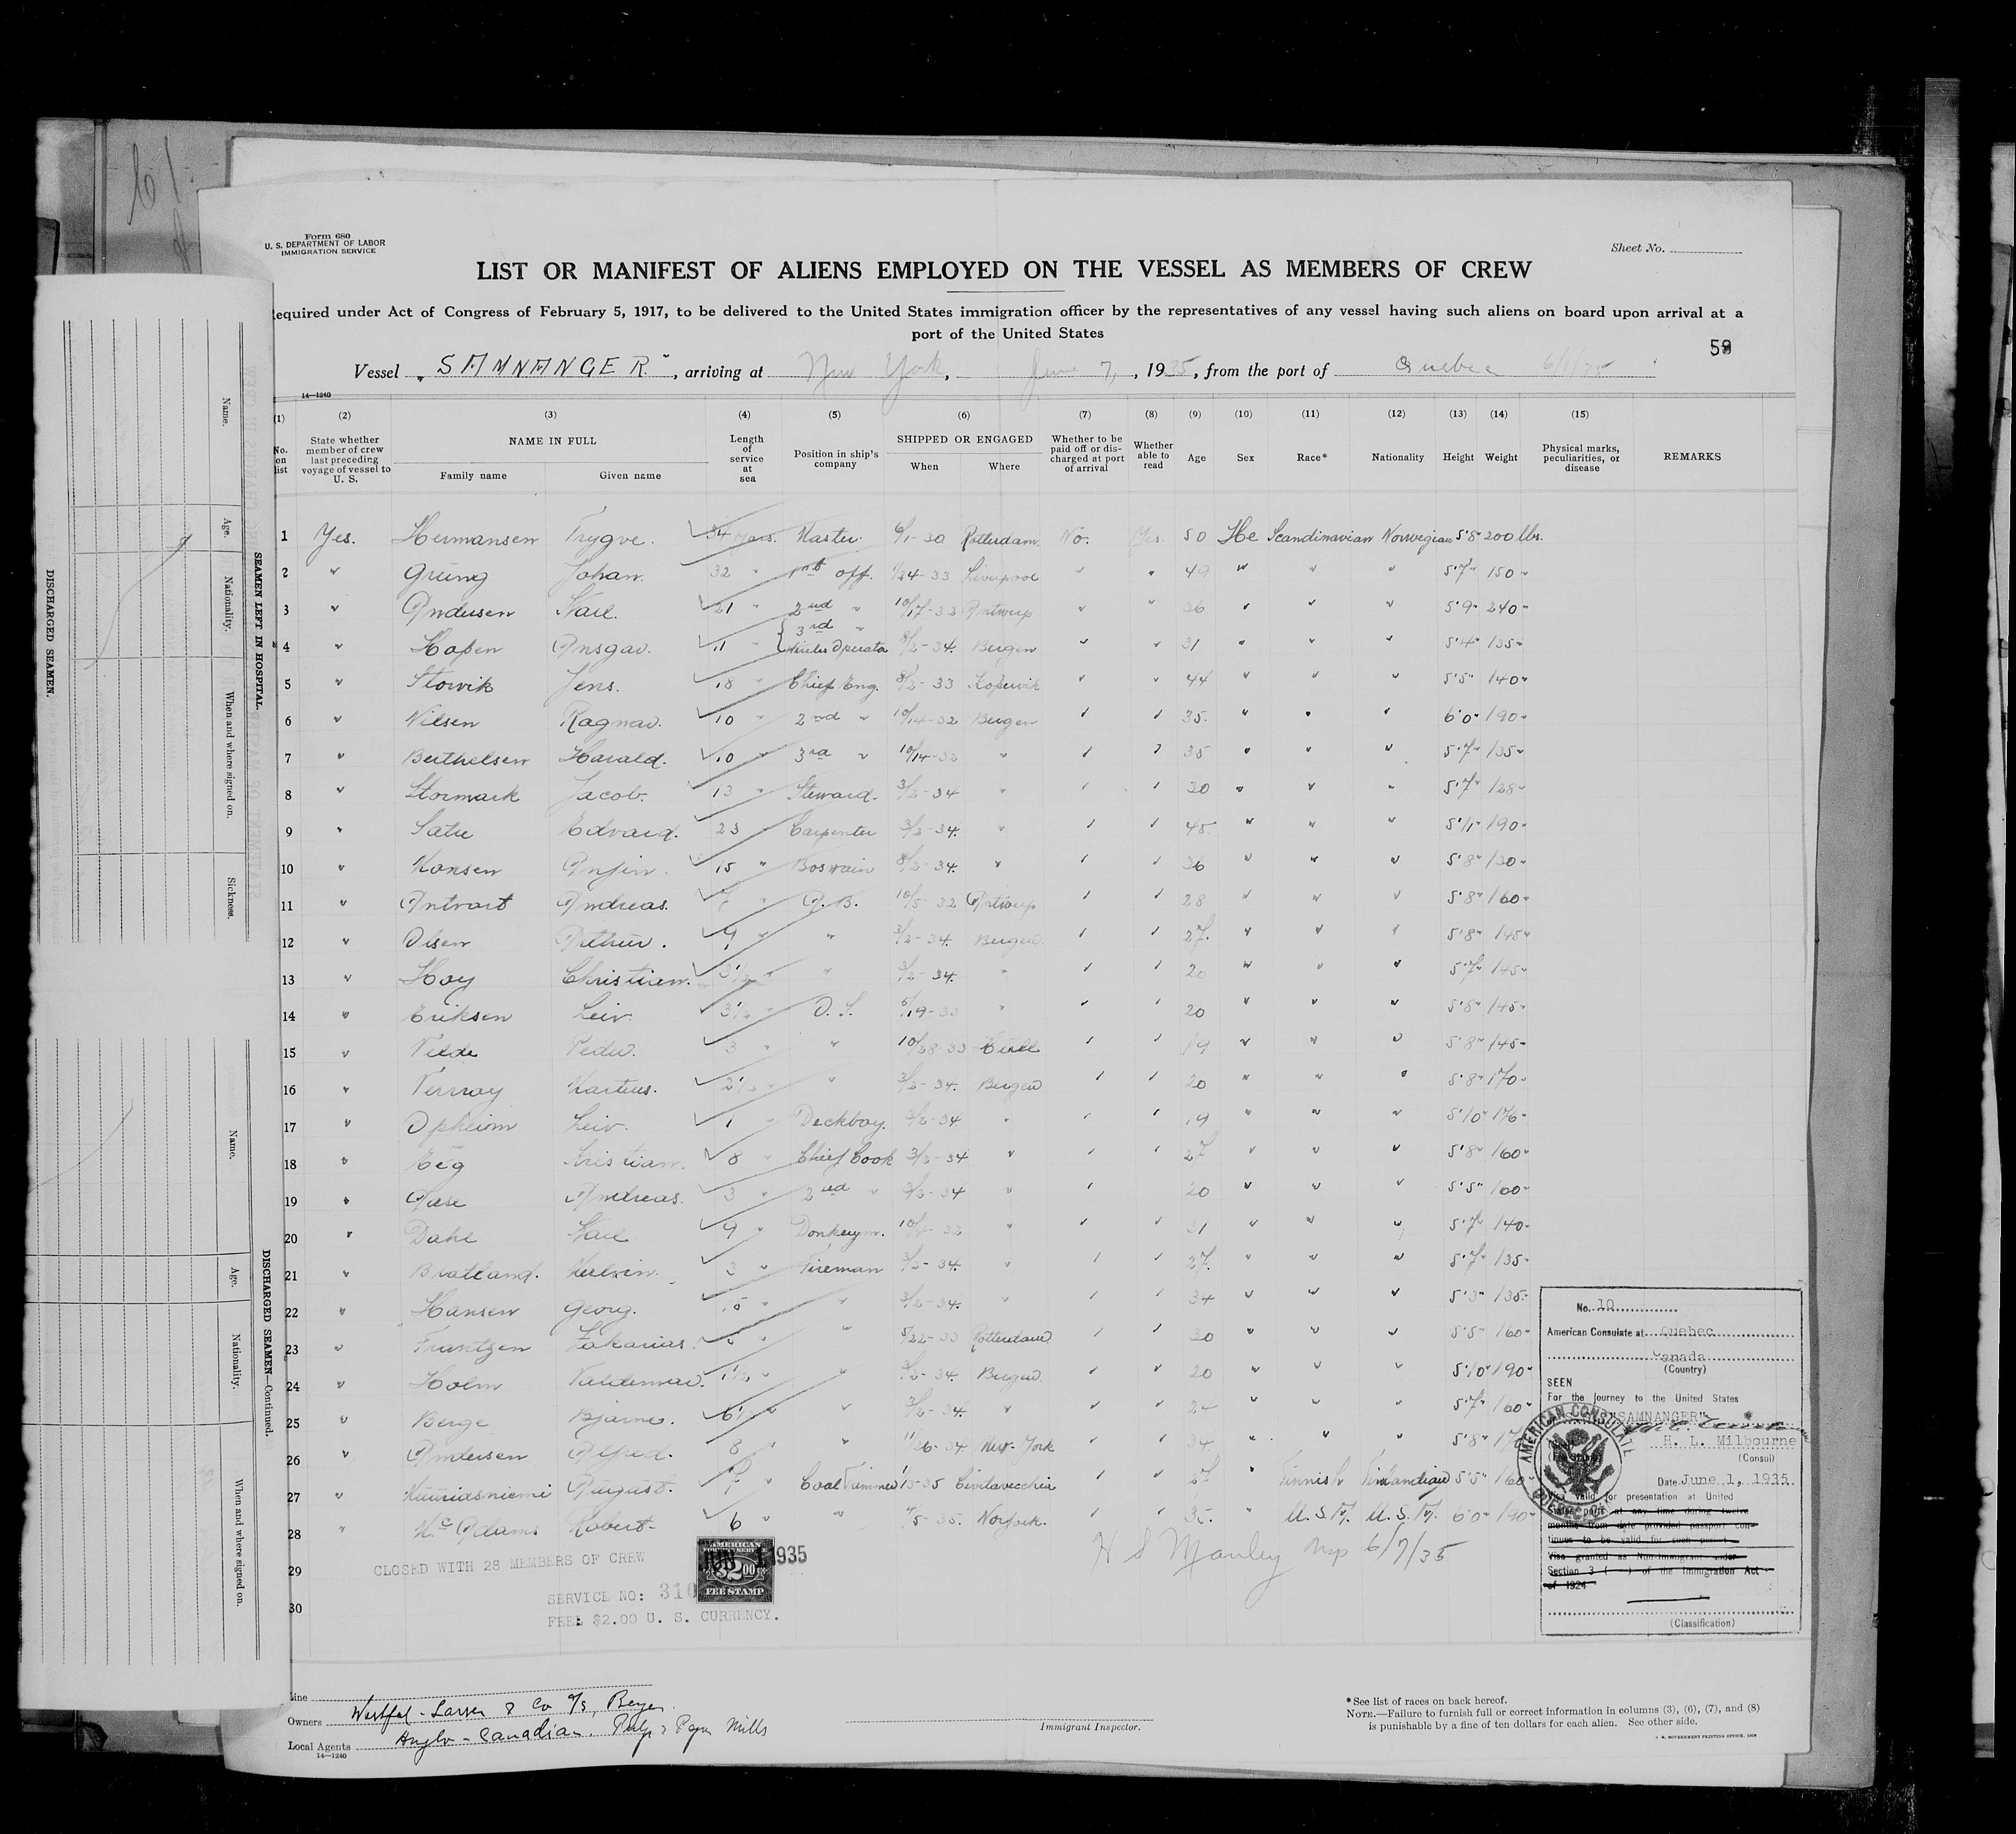 Form 680
U. S. DEPARTMENT OF LABOR
IMMIGRATION SERVICE
Sheet No.
LIST OR MANIFEST OF ALIENS EMPLOYED ON THE VESSEL AS MEMBERS OF CREW
equired under Act of Congress of February 5, 1917, to be delivered to the United States immigration officer by the representatives of any vessel having such aliens on board upon arrival at a
port of the United States
Vessel "SAMNANGER", arriving at New York, June 7, 1935, from the port of Quebec 6/1/35
14—1240
(1) (2) (3) (4) (5) (6) (7) (8) (9) (10) (11) (12) (13) (14) (15)
No. on list
State whether member of crew last preceding voyage of vessel to U. S.
NAME IN FULL
Family name Given name
Length of service at sea
Position in ship's company
SHIPPED OR ENGAGED
When Where
Whether to be paid off or discharged at port of arrival
Whether able to read
Age Sex Race* Nationality Height Weight
Physical marks, peculiarities, or disease
REMARKS
1 Yes. Hermansen Trygve. 34 years. Master. 6/1-30 Rotterdam. No. Yes. 50 He Scandinavian Norwegian 5'8" 200 lbs.
2 " Johan. 32 " 1st off. 1/24-33 Liverpool " " 49 " " " 5'7" 150 "
3 " Andersen Kare. 21 " 2nd " Antwerp " " 36 " " " 5'9" 240 "
4 " Hopen Ansgar. 11 " 3rd " Bergen " " 31 " " " 5'4" 135 "
5 " Jens. 18 " Chief Eng. Kopervik " " 44 " " " 5'5" 140 "
6 " Nilsen Ragnar. 10 " 2nd " 10/14-32 Bergen " " 35. " " " 6'0" 190 "
7 " Berthelsen Harald. 10 " 3rd " " " " 35 " " " 5'7" 135 "
8 " Stormark Jacob. 13 " Steward. 3/2-34 " " " 30 " " " 5'7" 128 "
9 " Edvard. 23 " Carpenter 3/2-34. " " " 45. " " " 190 "
10 " Hansen 15 " Boswain " " " 36 " " " 5'8" 130 "
11 " Andreas. " A.B. Antwerp " " 28 " " " 5'8" 160 "
12 " Olsen Arthur. 9 " " 3/2-34. Bergen. " " 27. " " " 5'8" 145 "
13 " Hoy Christian. 3½ " " 3/2-34. " " " 20 " " " 5'7" 145 "
14 " Eriksen Leiv. 3½ " O.S. " " " 20 " " " 5'8" 145 "
15 " Velde Peder. 3 " " " " 19 " " " 5'8" 145 "
16 " Martius. 2½ " " 3/2-34. Bergen " " 20 " " " 5'8" 170 "
17 " Opheim Leiv. 1 " Deckboy. 3/2-34 " " " 19 " " " 5'10" 176 "
18 " Eeg Kristian. 8 " Chief Cook 3/2-34 " " " 27 " " " 5'8" 160 "
19 " Aase Andreas. 3 " 2nd " 3/2-34 " " 20 " " " 5'5" 160 "
20 " Dahl Kare 9 " Donkeym. " " " 31 " " " 5'7" 140 "
21 " Bratland. 3 " Fireman 3/2-34. " " " 27. " " " 5'7" 135 "
22 " Hansen Georg. 15 " " 3/2-34. " " " 34 " " " 5'3" 135 "
23 " Frantzen Zakarias. " " 5/22-33 Rotterdam " " 30 " " " 5'5" 160 "
24 " Holm Valdemar. 1½ " " 3/2-34. Bergen. " " 20 " " " 5'10" 190 "
25 " Berge Bjarne. 6½ " " 3/2-34. " " " 24 " " " 5'7" 160 "
26 " Andersen Alfred. 8 " " 11/26-34 New-York " " 34 " " " 5'8"
27 " August. " Coal Trimmer Civitavecchia " " 27 " Finnish Finlandian 5'5" 160 "
28 " McAdams Robert. 6 " " Norfolk. " " 35. " U.S.A. U.S.A. 6'0" 190 "
29
30
CLOSED WITH 28 MEMBERS OF CREW
SERVICE NO: 310
FEE: $2.00 U. S. CURRENCY.
JUN 1 1935
AMERICAN
$2.00
FEE STAMP
H S Manley Insp 6/7/35
No. 10
American Consulate at Quebec
Canada
(Country)
SEEN
For the journey to the United States
"SAMNANGER"
H. L. Milbourne
(Consul)
Date June 1, 1935.
Visa valid for presentation at United
States ports at any time during twelve
months from date provided passport con-
tinues to be valid for such period.
Visa granted as Non-Immigrant under
Section 3 ( ) of the Immigration Act
of 1924
(Classification)
AMERICAN CONSULATE
Line
Owners Westfal-Larsen & Co A/S, Bergen
Local Agents Anglo-Canadian Pulp & Paper Mills
14—1240
Immigrant Inspector.
*See list of races on back hereof.
NOTE.—Failure to furnish full or correct information in columns (3), (6), (7), and (8)
is punishable by a fine of ten dollars for each alien. See other side.
U. S. GOVERNMENT PRINTING OFFICE
DISCHARGED SEAMEN.
SEAMEN LEFT IN HOSPITAL.
Name. Age. Nationality. When and where signed on. Sickness.
DISCHARGED SEAMEN—Continued.
Name. Age. Nationality. When and where signed on.